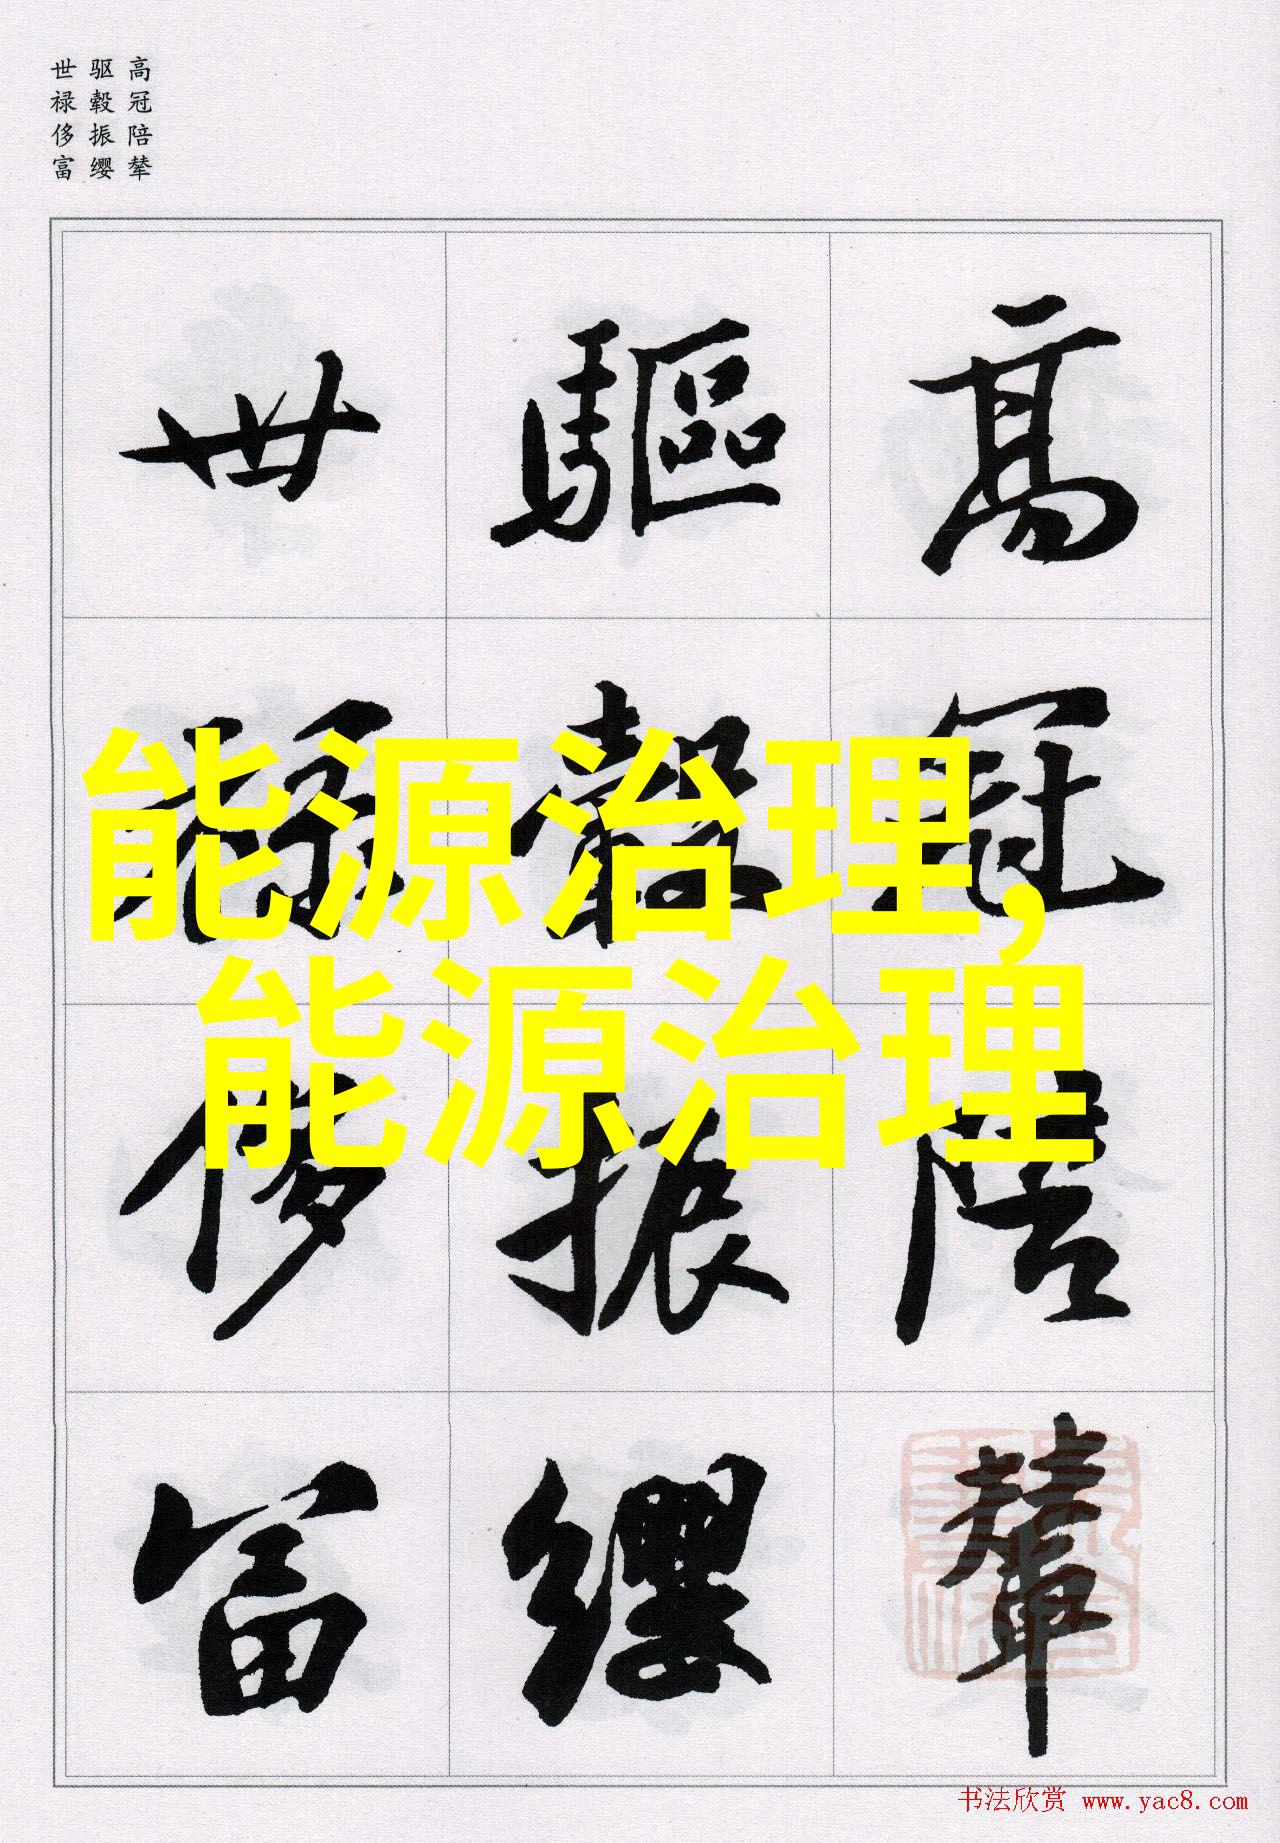 高冠陪辇
驱毂振缨
世禄侈富
高冠陪輦
驅轂振纓
世禄侈富
能源治理,
能源治理
书法欣赏 www.yac8.com